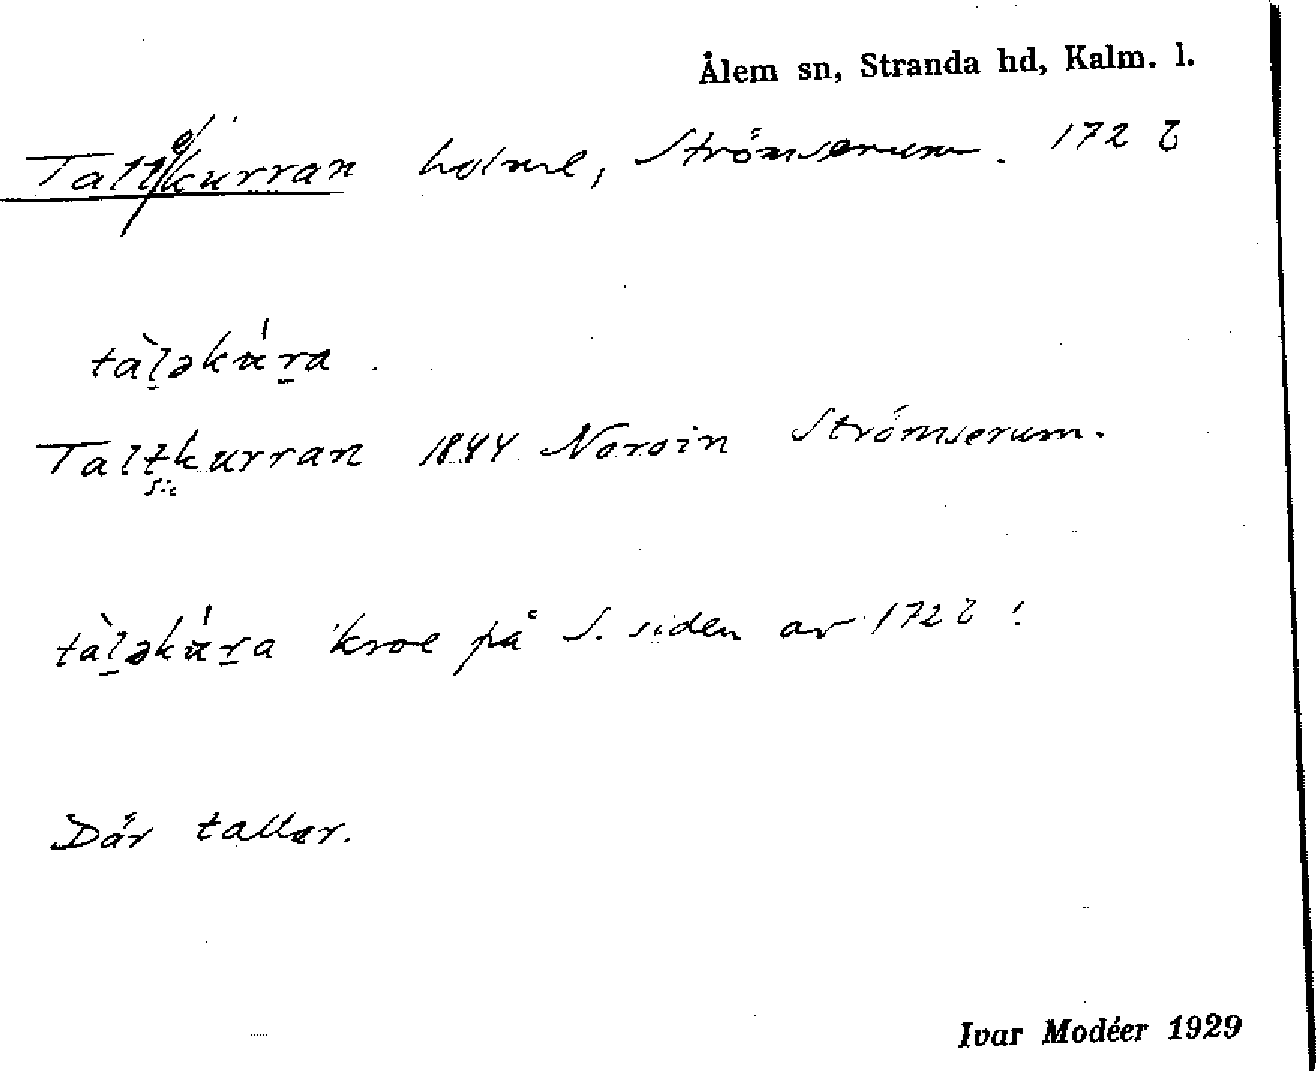 Ålem sn, Stranda hd, Kalm. l.
Tallekurran holme, Strömserum. 172 b
tàl̠əkúr̠a.
Taltkurran 1844 Nordin Strömserum.
sic
tàl̠əkúr̠a på S. siden av 172 b!
Där tallar.
Ivar Modéer 1929